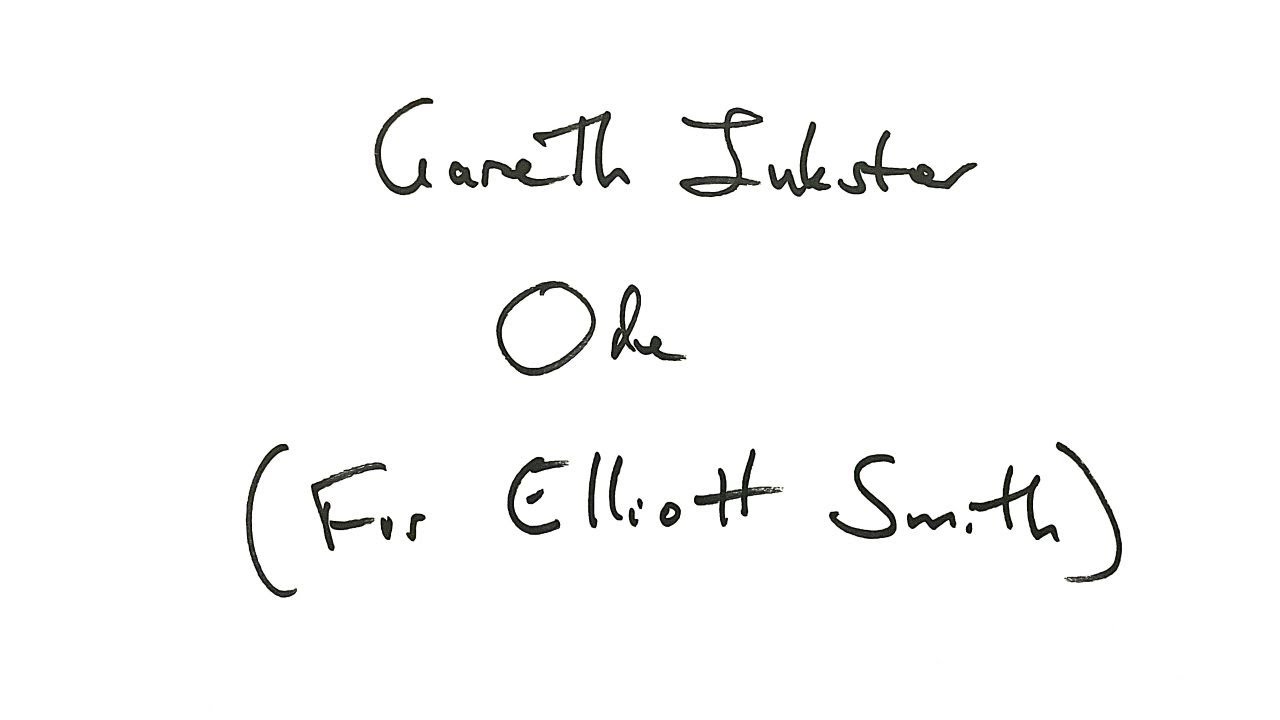 Gareth Inkster
Ode
(For Elliott Smith)